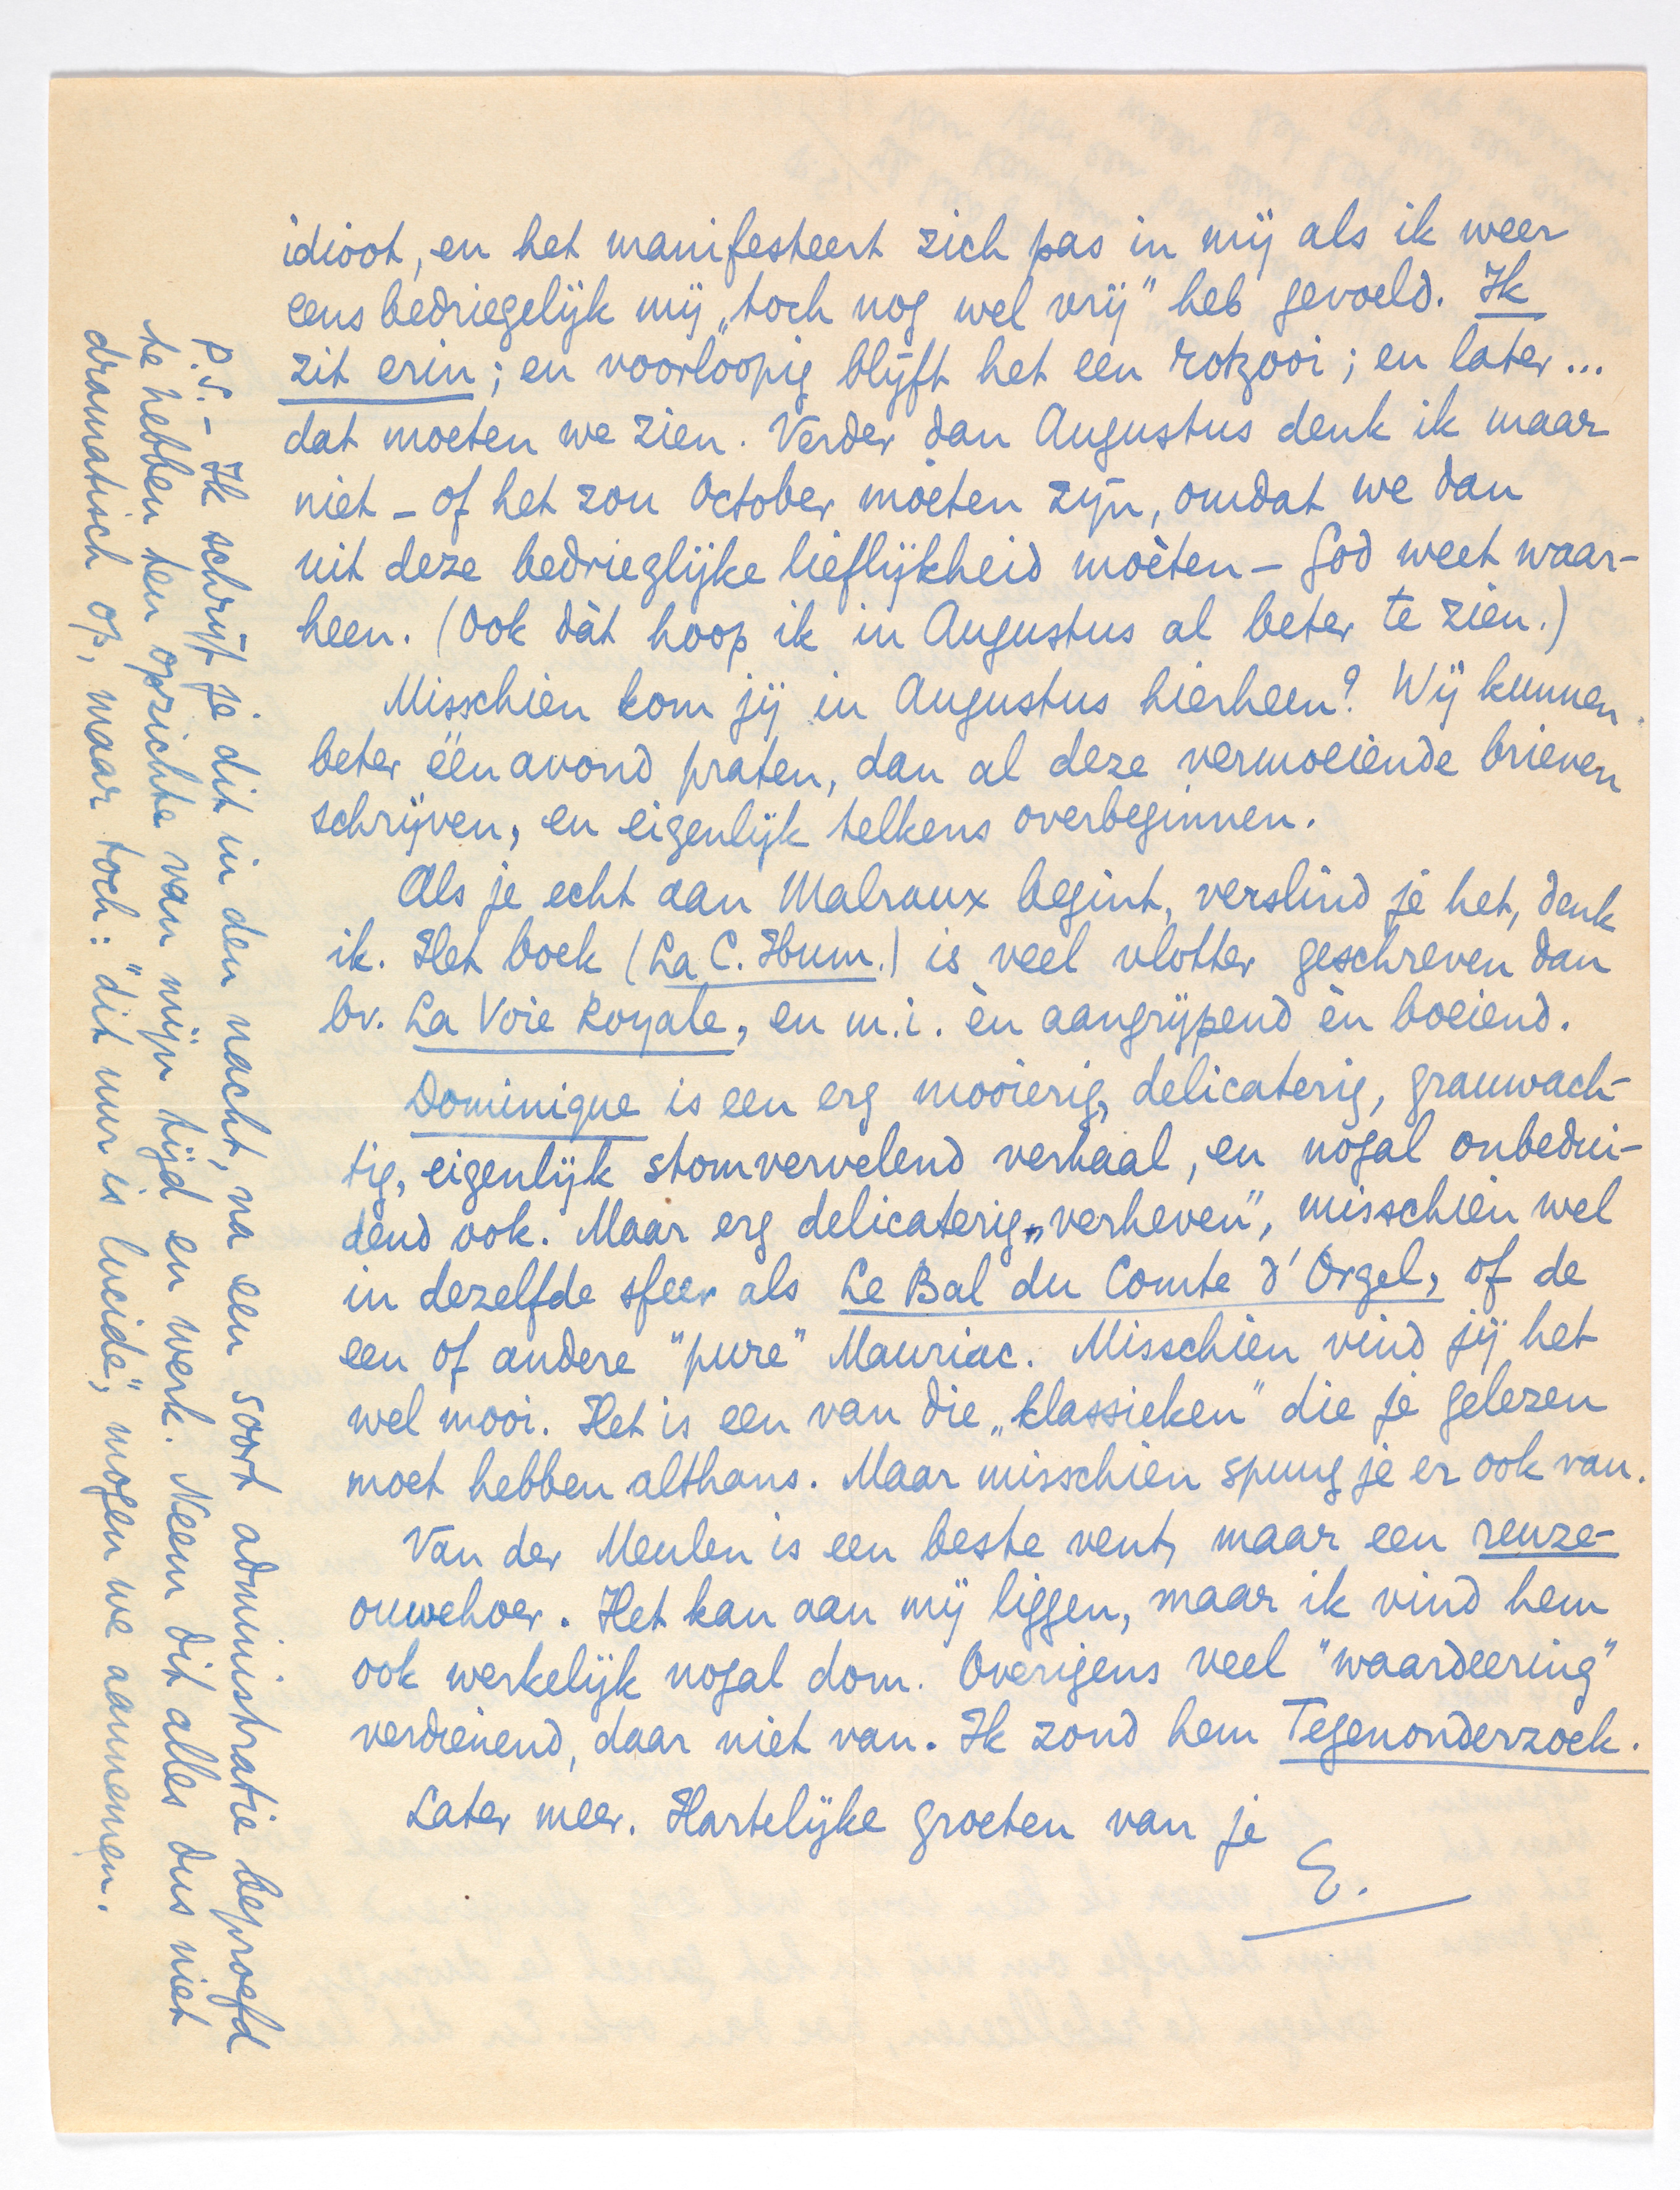 idioot, en het manifesteert zich pas in mij als ik weer
eens bedriegelijk mij „toch nog wel vrij" heb gevoeld. Ik
zit erin; en voorloopig blijft het een rotzooi; en later...
dat moeten we zien. Verder dan Augustus denk ik maar
niet – of het zou October moeten zijn, omdat we dan
uit deze bedrieglijke lieflijkheid moèten – God weet waar-
heen. (Ook dàt hoop ik in Augustus al beter te zien.)
Misschien kom jij in Augustus hierheen? Wij kunnen
beter één avond praten, dan al deze vermoeiende brieven
schrijven, en eigenlijk telkens overbeginnen.
Als je echt aan Malraux begint, verslind je het, denk
ik. Het boek (La C. Hum.) is veel vlotter geschreven dan
bv. La Voie Royale, en m.i. èn aangrijpend èn boeiend.
Dominique is een erg mooierig, delicaterig, grauwach-
tig, eigenlijk stomvervelend verhaal, en nogal onbedui-
dend ook. Maar erg delicaterig-„verheven", misschien wel
in dezelfde sfeer als Le Bal du Comte d'Orgel, of de
een of andere "pure" Mauriac. Misschien vind jij het
wel mooi. Het is een van die „klassieken" die je gelezen
moet hebben althans. Maar misschien spuug je er ook van.
Van der Meulen is een beste vent, maar een reuze-
ouwehoer. Het kan aan mij liggen, maar ik vind hem
ook werkelijk nogal dom. Overigens veel "waardeering"
verdienend, daar niet van. Ik zond hem Tegenonderzoek.
Later meer. Hartelijke groeten van je
E.
P.S. – Ik schrijf je dit in den nacht, na een soort administratie beproefd
te hebben ten opzichte van mijn tijd en werk. Neem dit alles dus niet
dramatisch op, maar toch: "dit uur is lucide", mogen we aannemen.